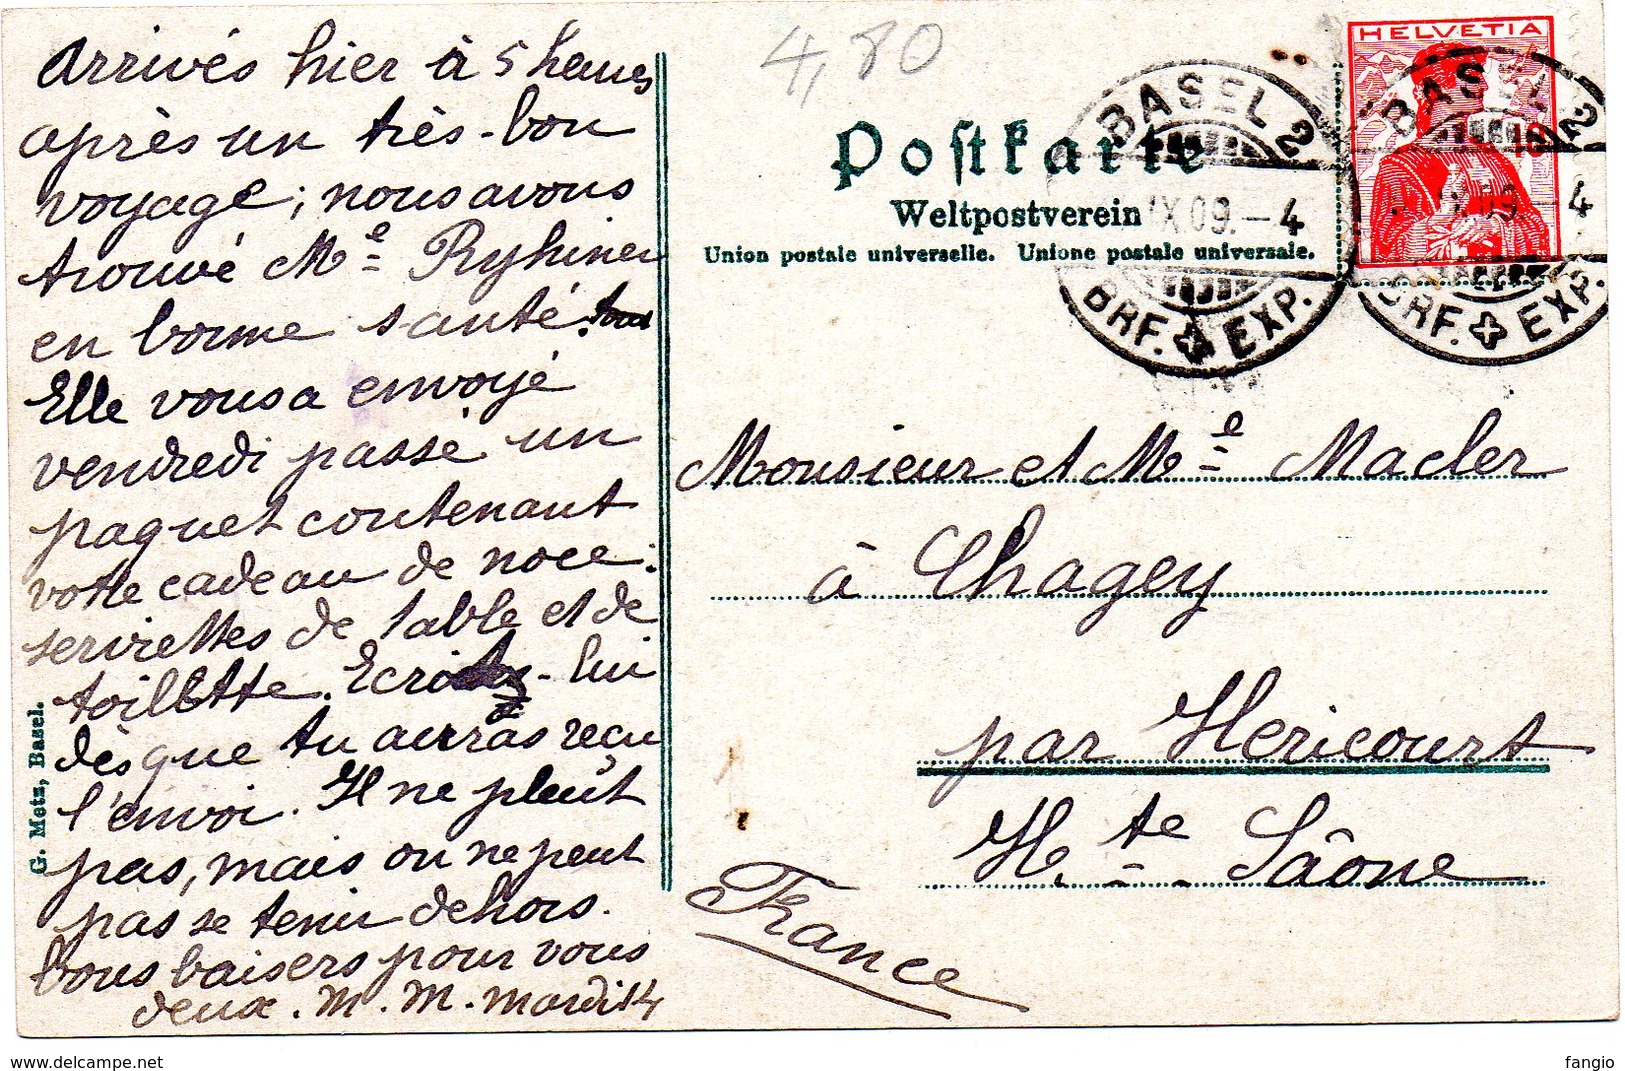 Arrivés hier à 5 heures
après un très-bon
voyage; nous avons
trouvé Me Ryhiner
en bonne santé.
Elle vous a envoyé
vendredi passé un
paquet contenant
votre cadeau de noce:
serviettes de table et de
toilette. Ecris-lui
dès que tu auras reçu
l'envoi. Il ne pleut
pas, mais on ne peut
pas se tenir dehors.
bons baisers pour vous
deux. M. M. mardi 14
G. Metz, Basel.
4,80
Postkarte
Weltpostverein
Union postale universelle. Unione postale universale.
HELVETIA
10
BASEL 2
IX.09.-4
BRF. EXP.
BASEL 2
IX 09 - 4
BRF. EXP.
Monsieur et Me Macler
à Chagey
par Héricourt
Hte Saône
France
www.delcampe.net
fangio